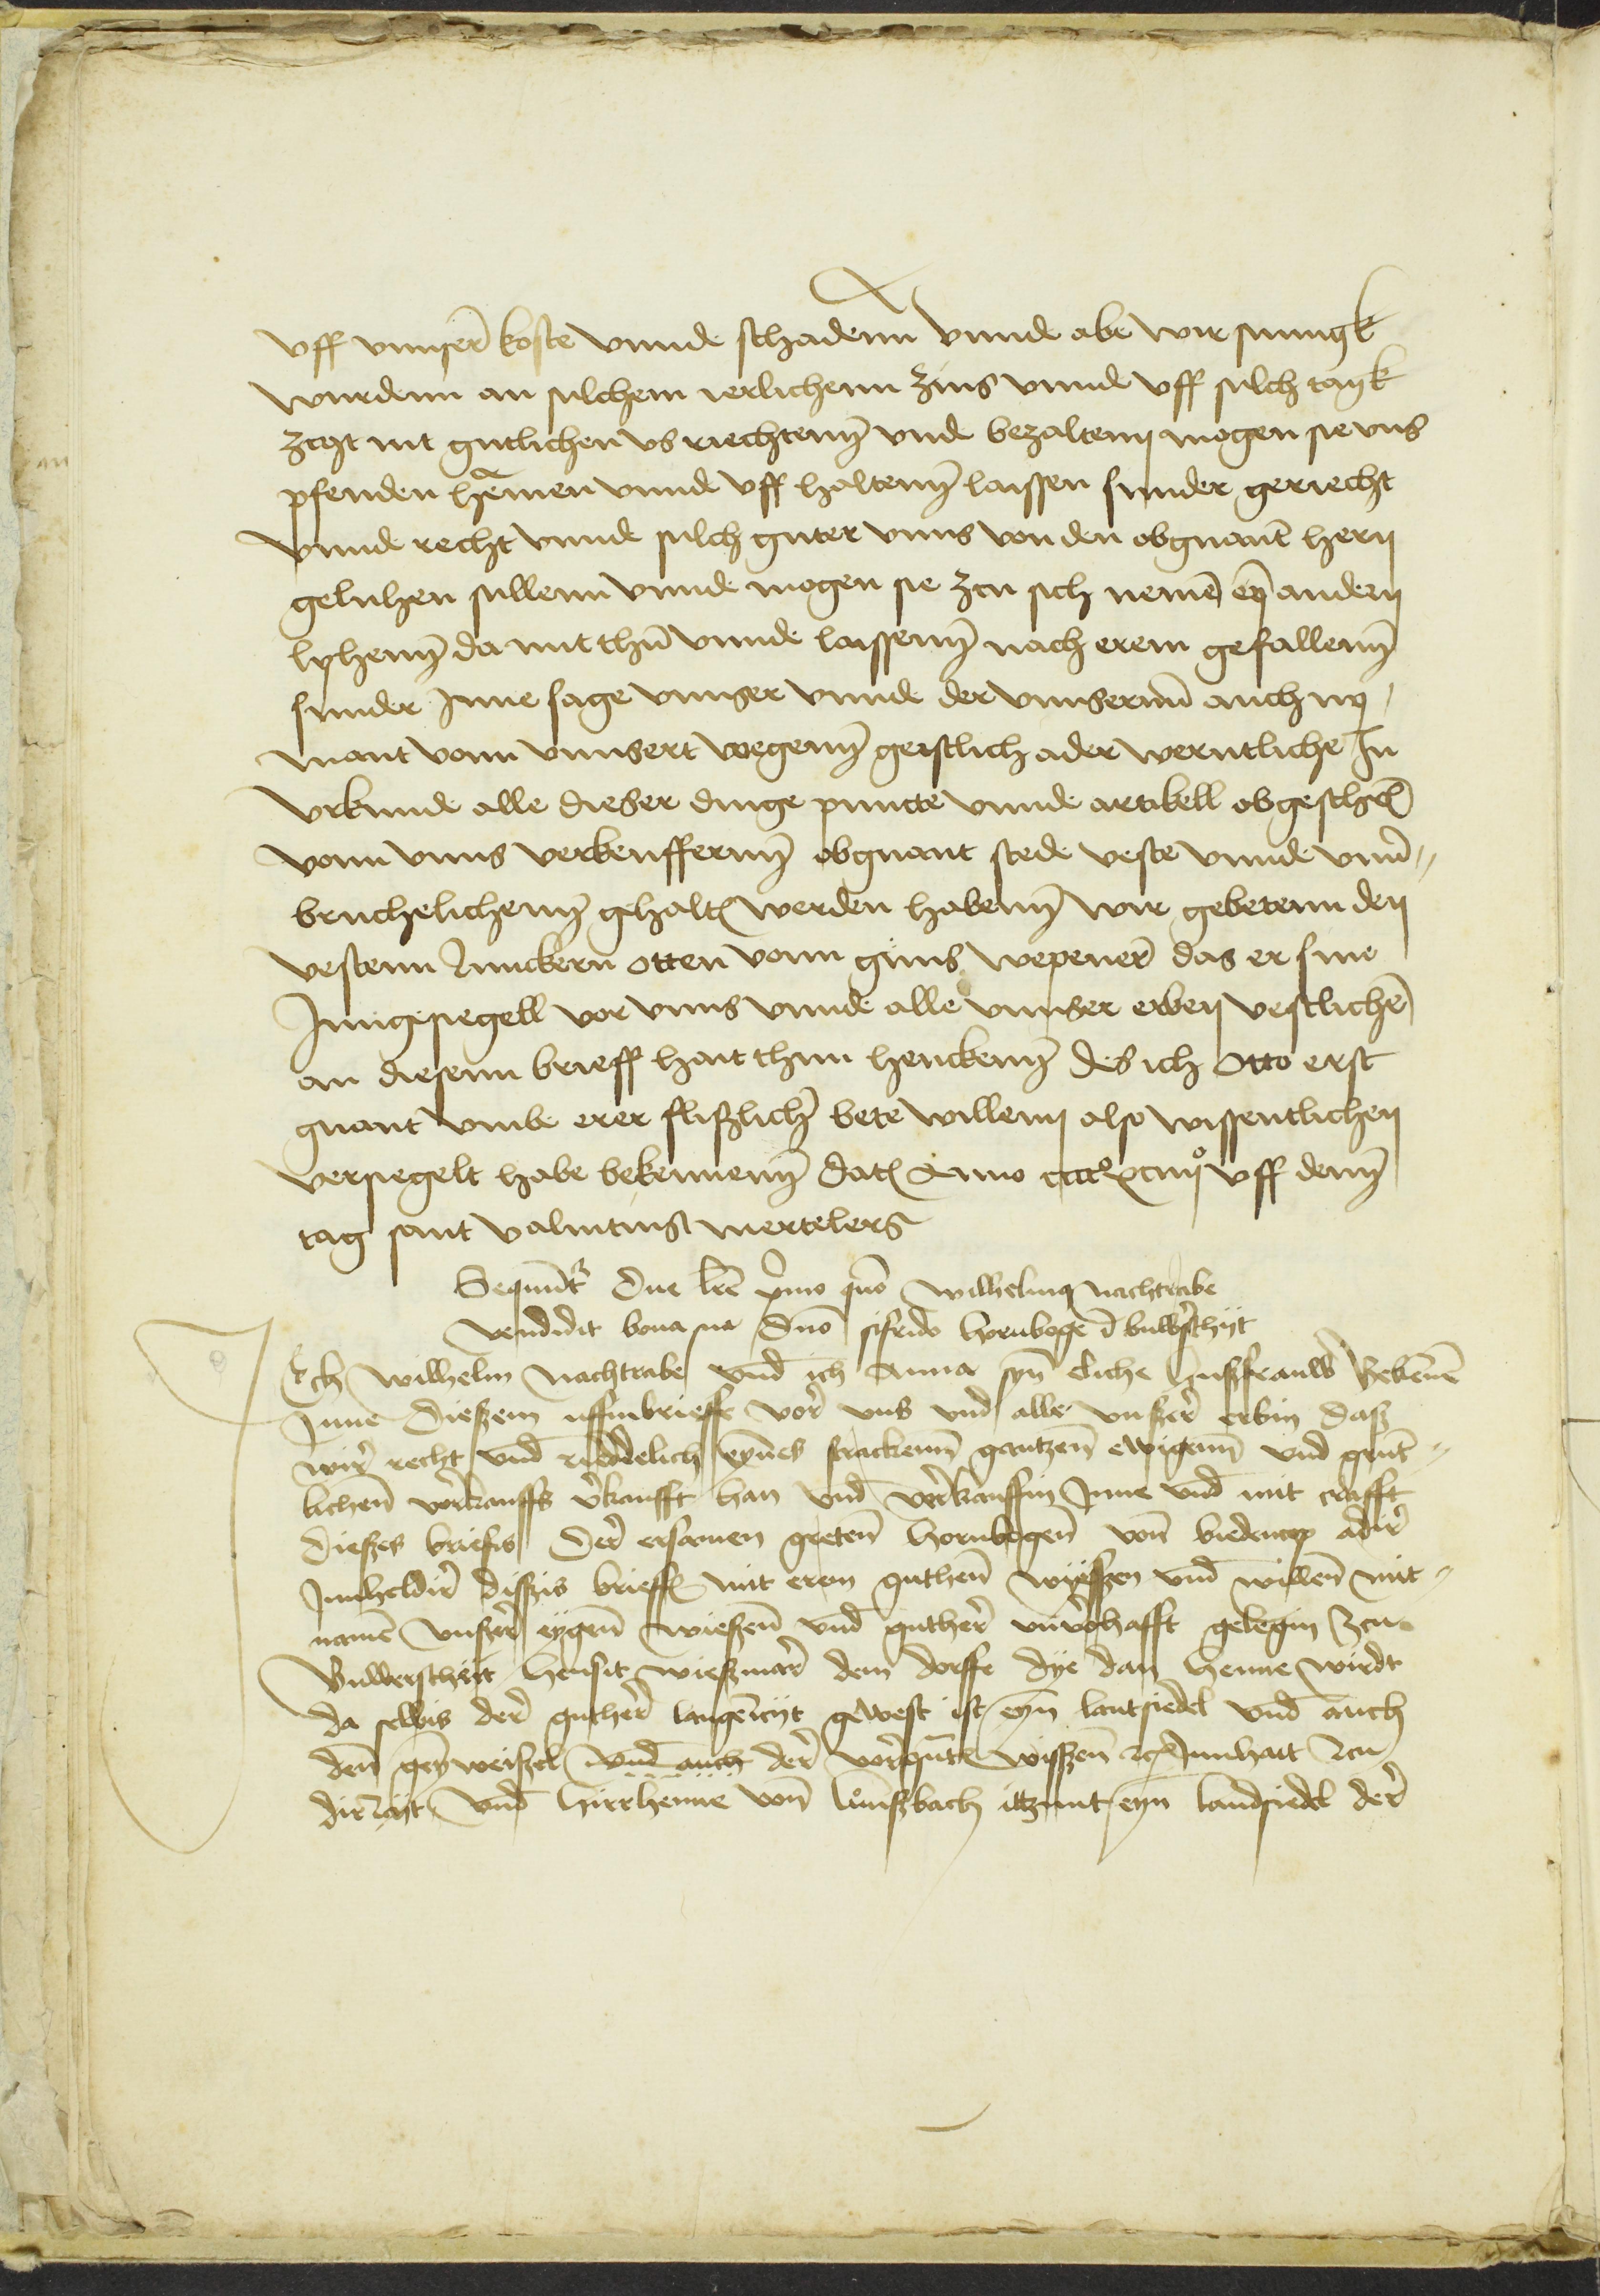 vff vnnser̄ koste vnnde schadenn vnnde abe wir sumigk
wurdenn an sulchem ierlichenn zins vnnde vff sulch tagk
zcijt nit gutlichen vs riechtenn vnde bezaltenn mogen sie vns
pfenden hemen vnnde vff haltenn laissen sunder geriecht
vnnde recht vnnde sulch guter vnns von den obgnantē hern
geluhen sullenn vnnde mogen sie zcu sich nemē eȳ andern
lyhenn da mit thū vnnde laissenn nach erem gefallenn
sunder Inne sage vnnser vnnde der vnnsernn auch ny
mant vonn vnnsert wegenn geistlich ader werntliche In
vrkunde alle dieser dinge puncte vnnde artikell obgeschrē
vonn vnns verkeuffernn obgnant stede veste vnnde vnū
bruchelichenn gehaltē werden habenn wir gebetenn den
vestenn Junckern otten vonn güns wepener̄ das er sine
Inngesiegell vor vnns vnnde alle vnnser erben vestlichē
an diesenn brieff hait thun henckenn des ich Otto erst
gnant vmbe erer flißlichē bete willenn also wissentlichen
versiegelt habe bekennenn Datē Anno cccc° xciiij° vff denn
tag sant valentinß mertelers
Sequūtʳ due lrē pͥmo quō wilhelmꝯ nachtrabe
vendidit bona sua dn̄o sifrido hornboge ī bulwerschijt
Ich wilhelm nachtrabe vnd̄ ich Anna syn̄ eliche hußfrauwe Bekēnē
Inne dießem uffinbrieffe vor̄ vns vnd alle vnßer̄ erbin daß
wir̄ recht vnd̄ riddelich eyn̄es stracken̄n gantzen̄ ewigen̄n vnd grūt
lichen̄ verkauffs v̓kaufft han vnd̄ ver̄kauffin Inne vnd̄ mit crafft
dießes briefis der̄ ersamen greten̄ hornbogen̄ von̄ biedencap adir̄
Innheldir̄ dißis brieffs mit erem guthen̄ wyßen vnd̄ willen̄ mit
namē vnßer̄ eygen̄ wießen̄ vnd̄ guther̄ vnv̓hafft gelegin zcu
Bulwerschijt hensit wießmar̄ dem dorffe dye dan henne wirdt
da selbis der̄ guther̄ langēcijt gewest ist eyn̄ lantsiedel vnd̄ auch
den̄ gey weißel vnd̄ auch der̄ vorgn̄tē wissen̄ ꝛcͣ Innhait zcu
dir zcijt vnd̄ hirrhenne von̄ lůnßbach ittzunt eyn̄ landsiedel der̄